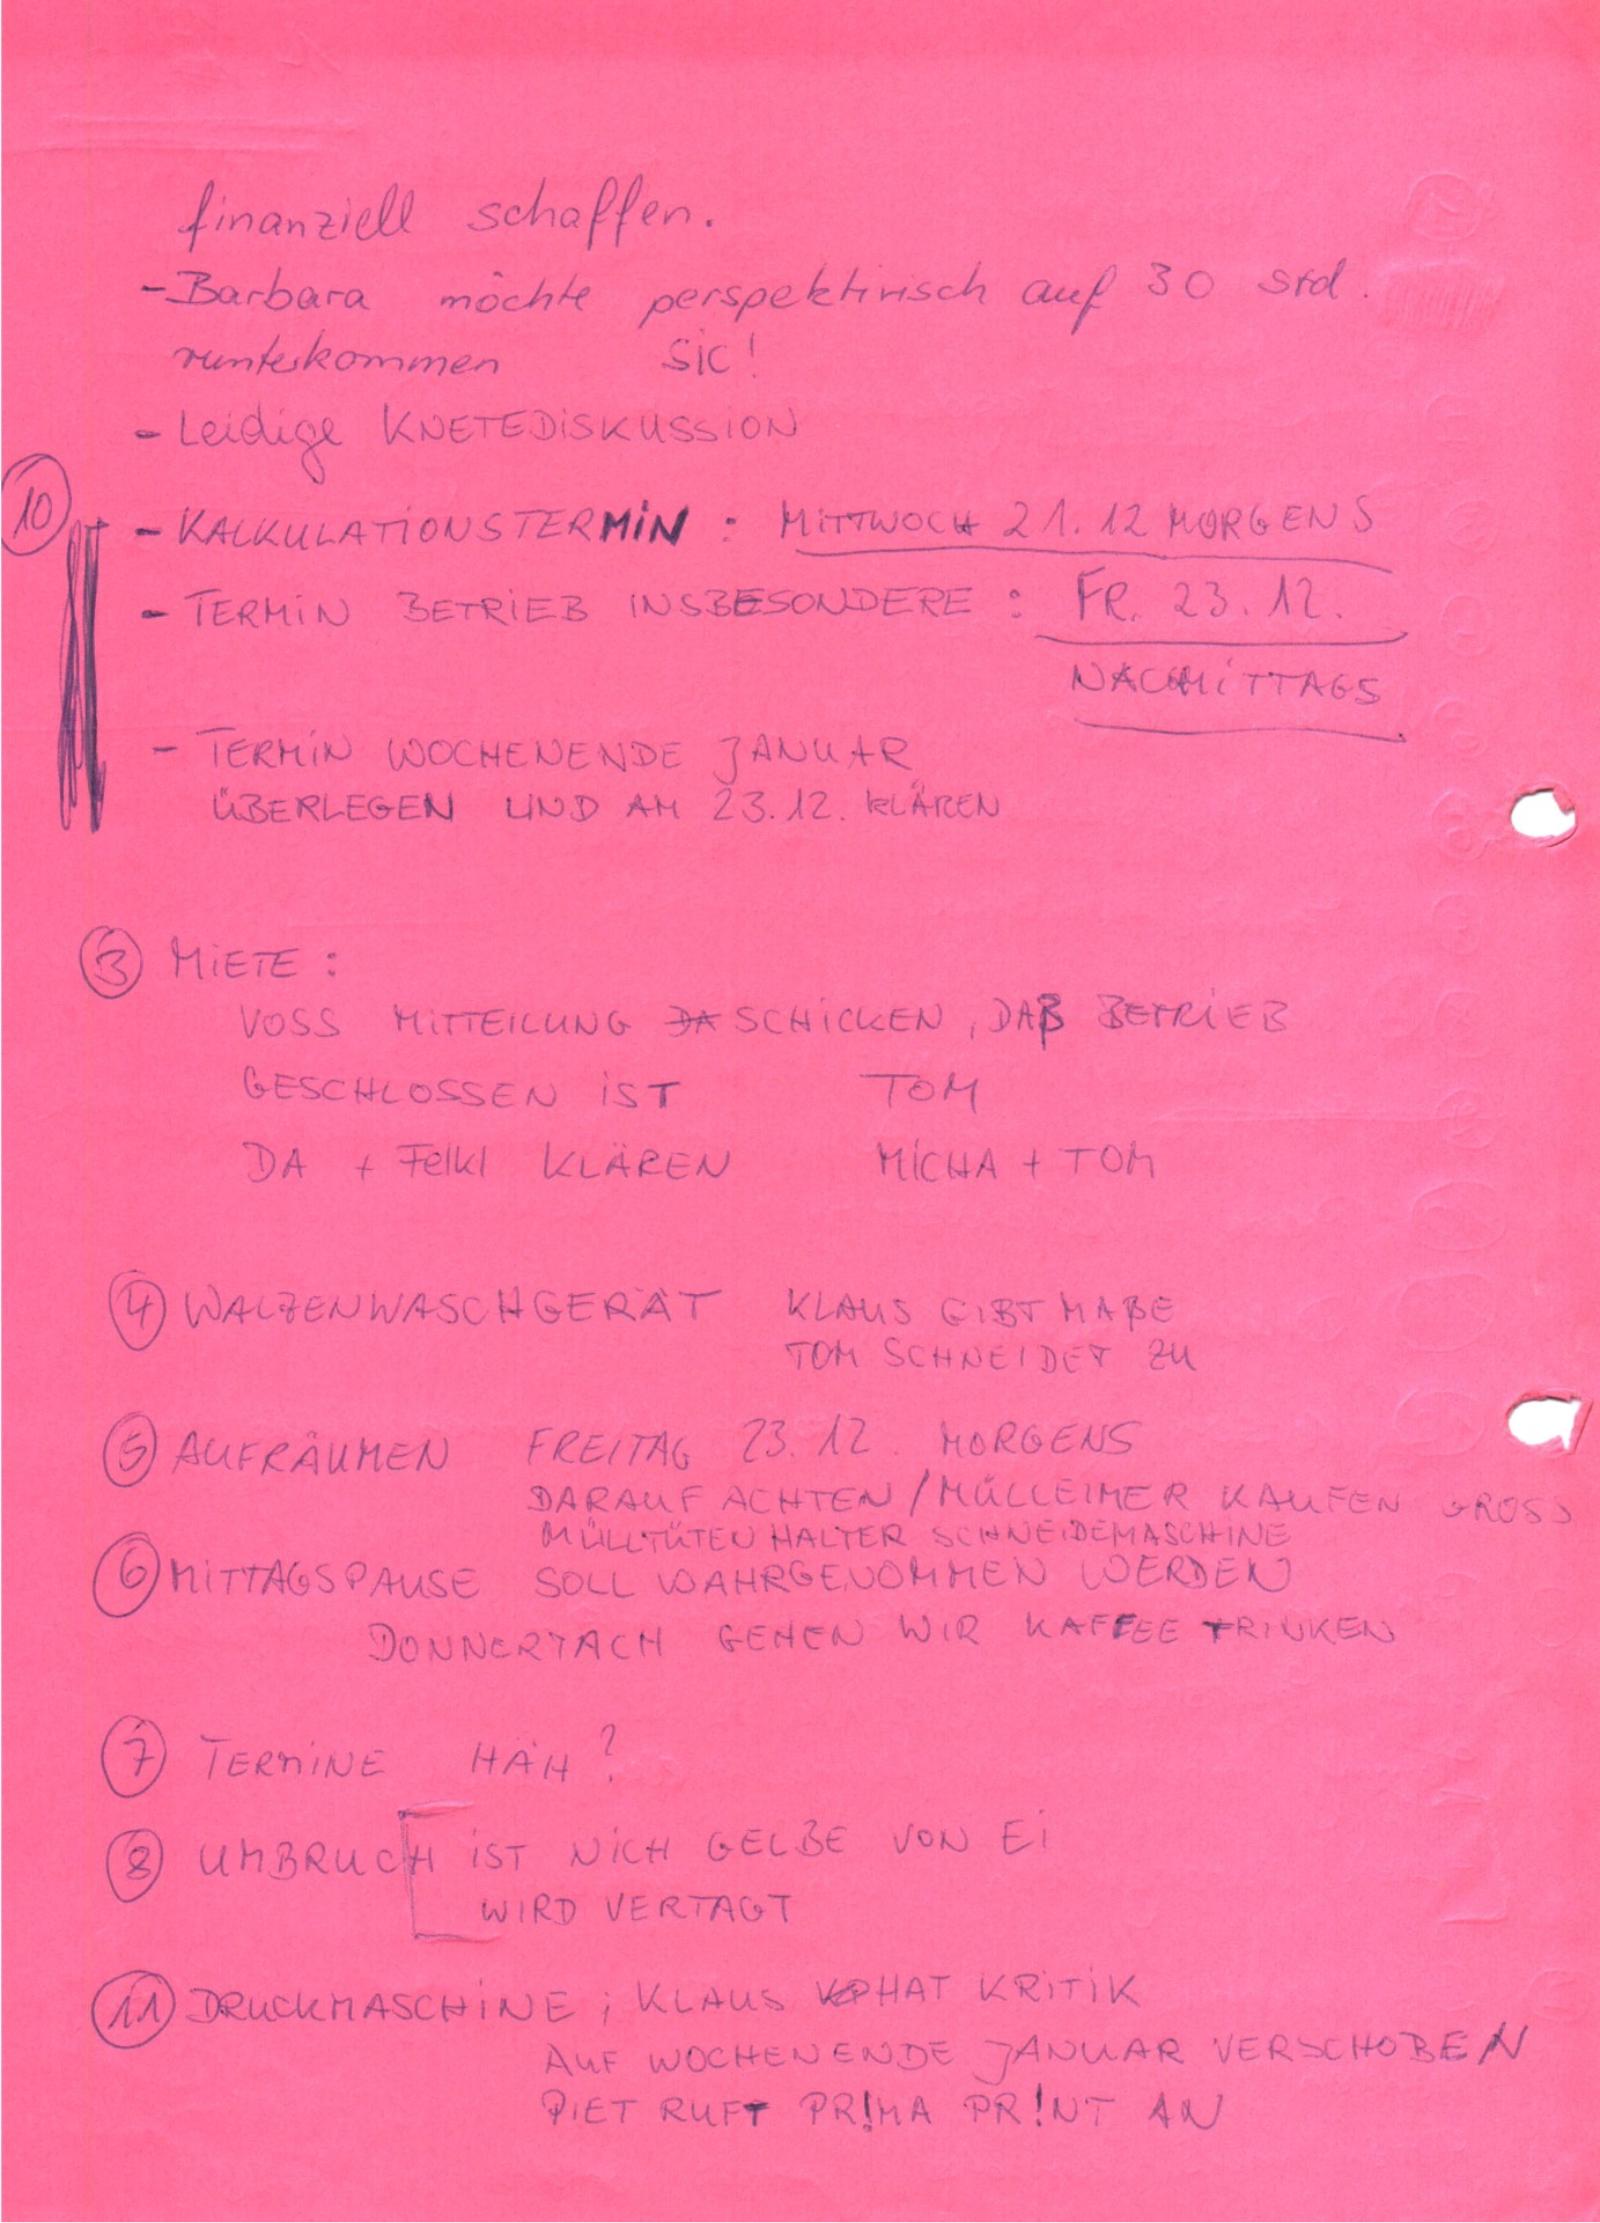 finanziell schaffen.
- Barbara möchte perspektivisch auf 30 std.
runterkommen SIC!
- Leidige KNETEDISKUSSION
10
- KALKULATIONSTERMIN : MITTWOCH 21.12 MORGENS
- TERMIN BETRIEB INSBESONDERE : FR. 23.12.
NACHMITTAGS
- TERMIN WOCHENENDE JANUAR
ÜBERLEGEN UND AM 23.12. KLÄREN
3 MIETE :
VOSS MITTEILUNG DA SCHICKEN, DAß BETRIEB
GESCHLOSSEN IST TOM
DA + FEIKI KLÄREN MICHA + TOM
4 WALZENWASCHGERÄT KLAUS GIBT MAßE
TOM SCHNEIDET ZU
5 AUFRÄUMEN FREITAG 23.12. MORGENS
DARAUF ACHTEN / MÜLLEIMER KAUFEN GROSS
MÜLLTÜTENHALTER SCHNEIDEMASCHINE
6 MITTAGSPAUSE SOLL WAHRGENOMMEN WERDEN
DONNERTACH GEHEN WIR KAFFEE TRINKEN
7 TERMINE HÄH?
8 UMBRUCH IST NICH GELBE VON EI
WIRD VERTAGT
11 DRUCKMASCHINE ; KLAUS HAT KRITIK
AUF WOCHENENDE JANUAR VERSCHOBEN
PIET RUFT PR!MA PR!NT AN